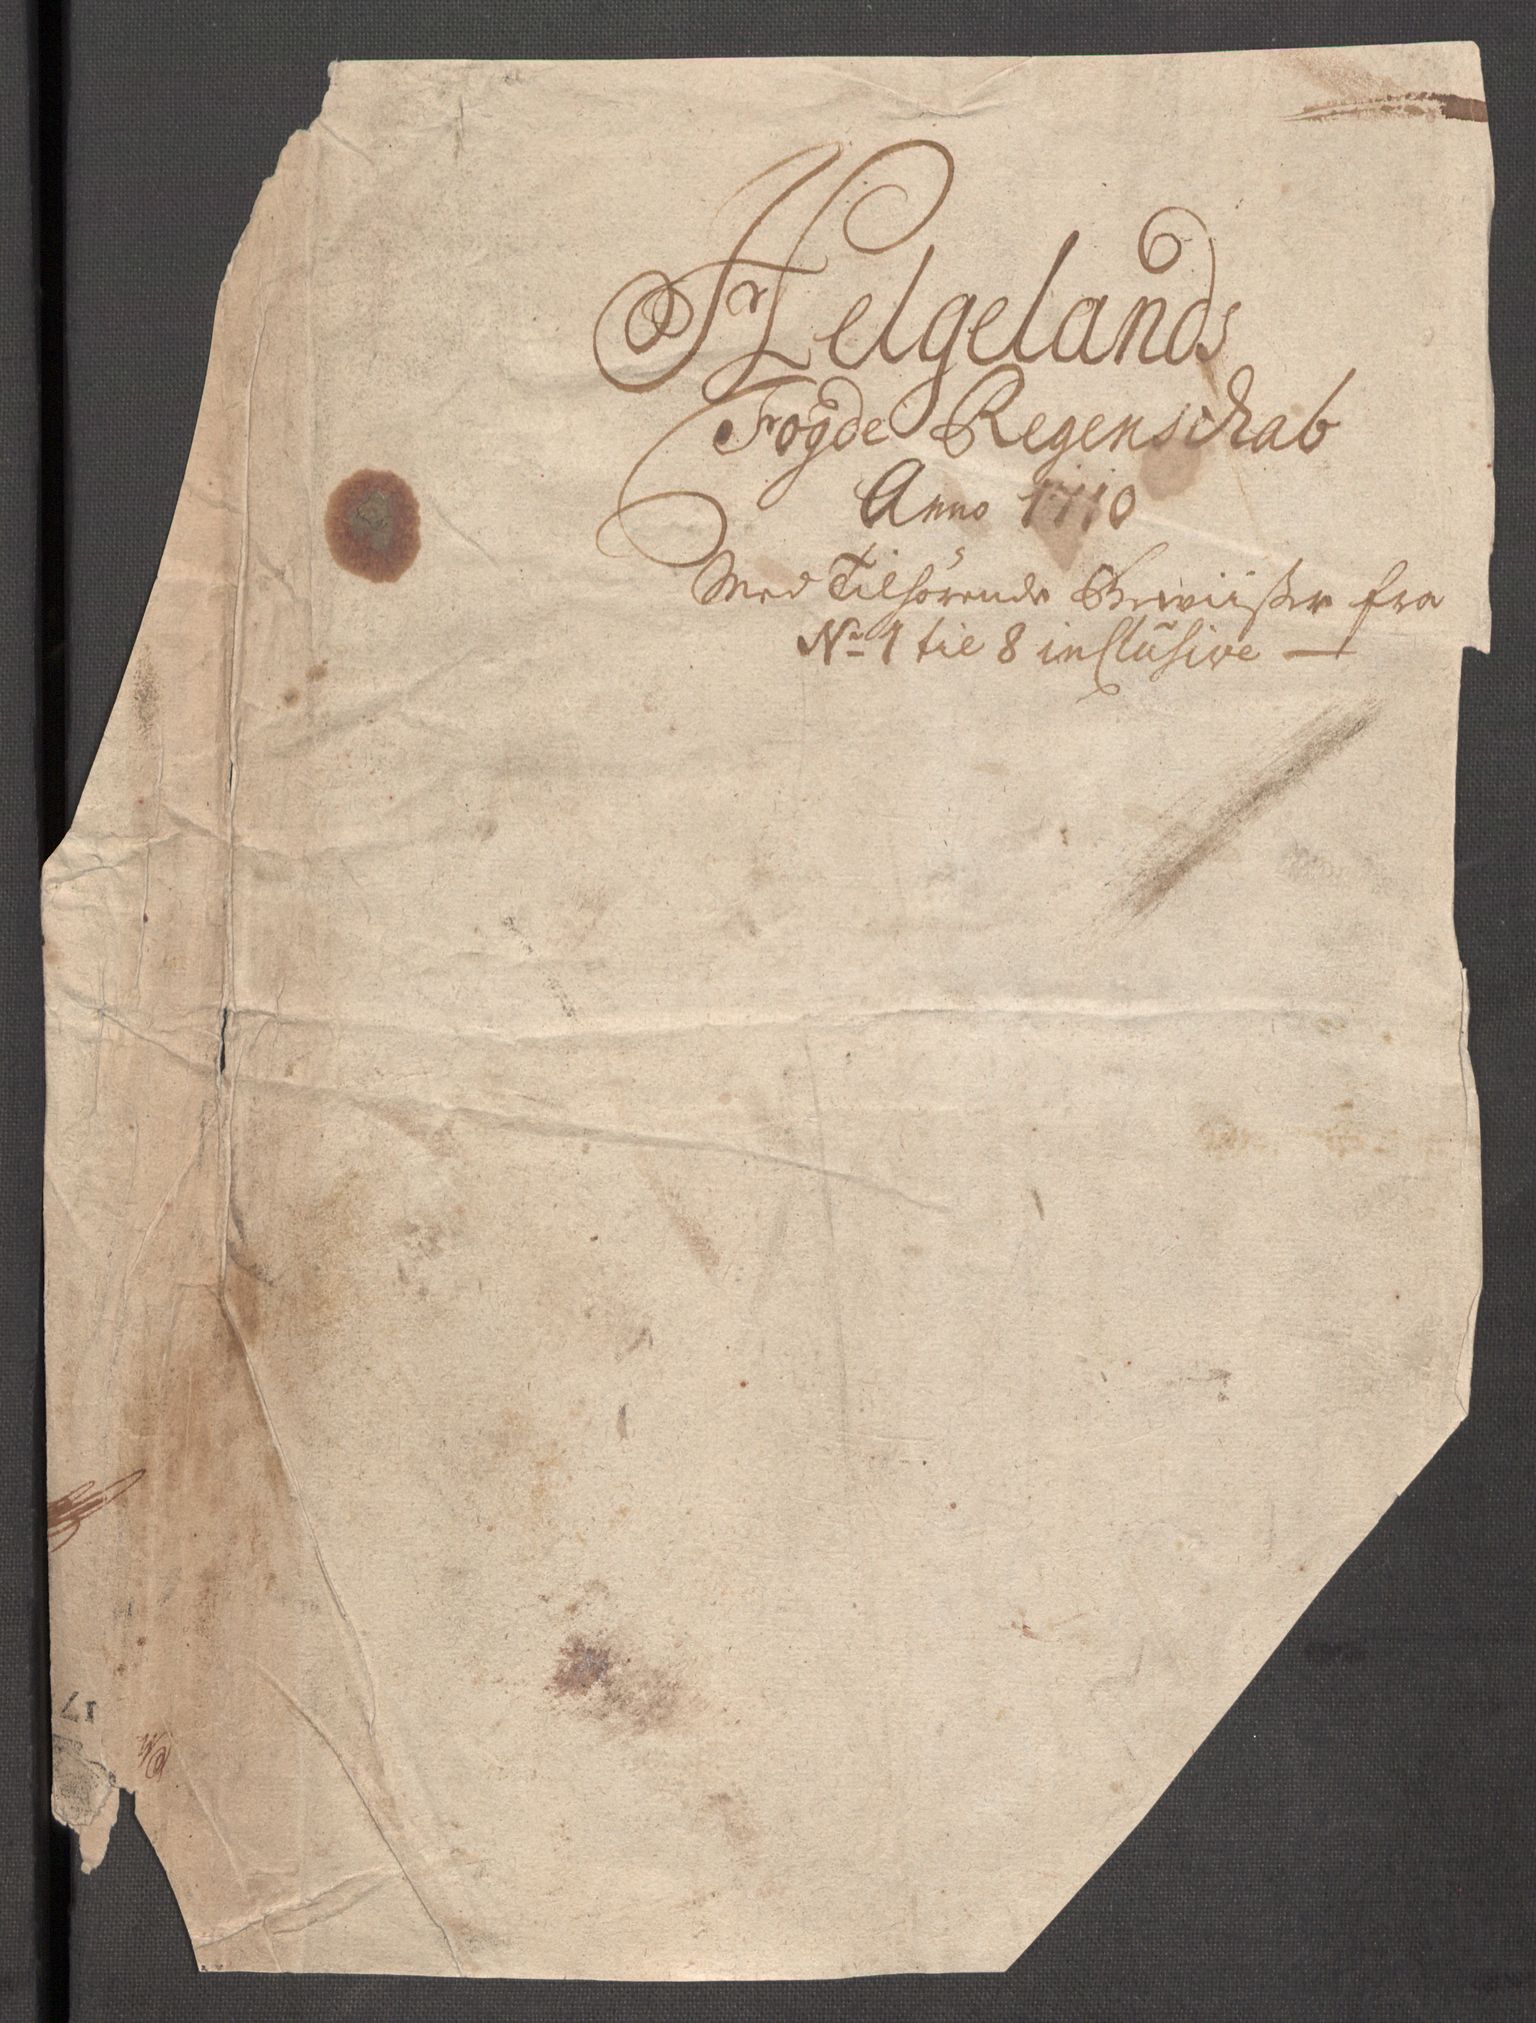 Helgelands
Fogde Regenschab
Anno 1710
Med Tilhörende Bewiißer fra
No 1 til 8 inclusive —
17